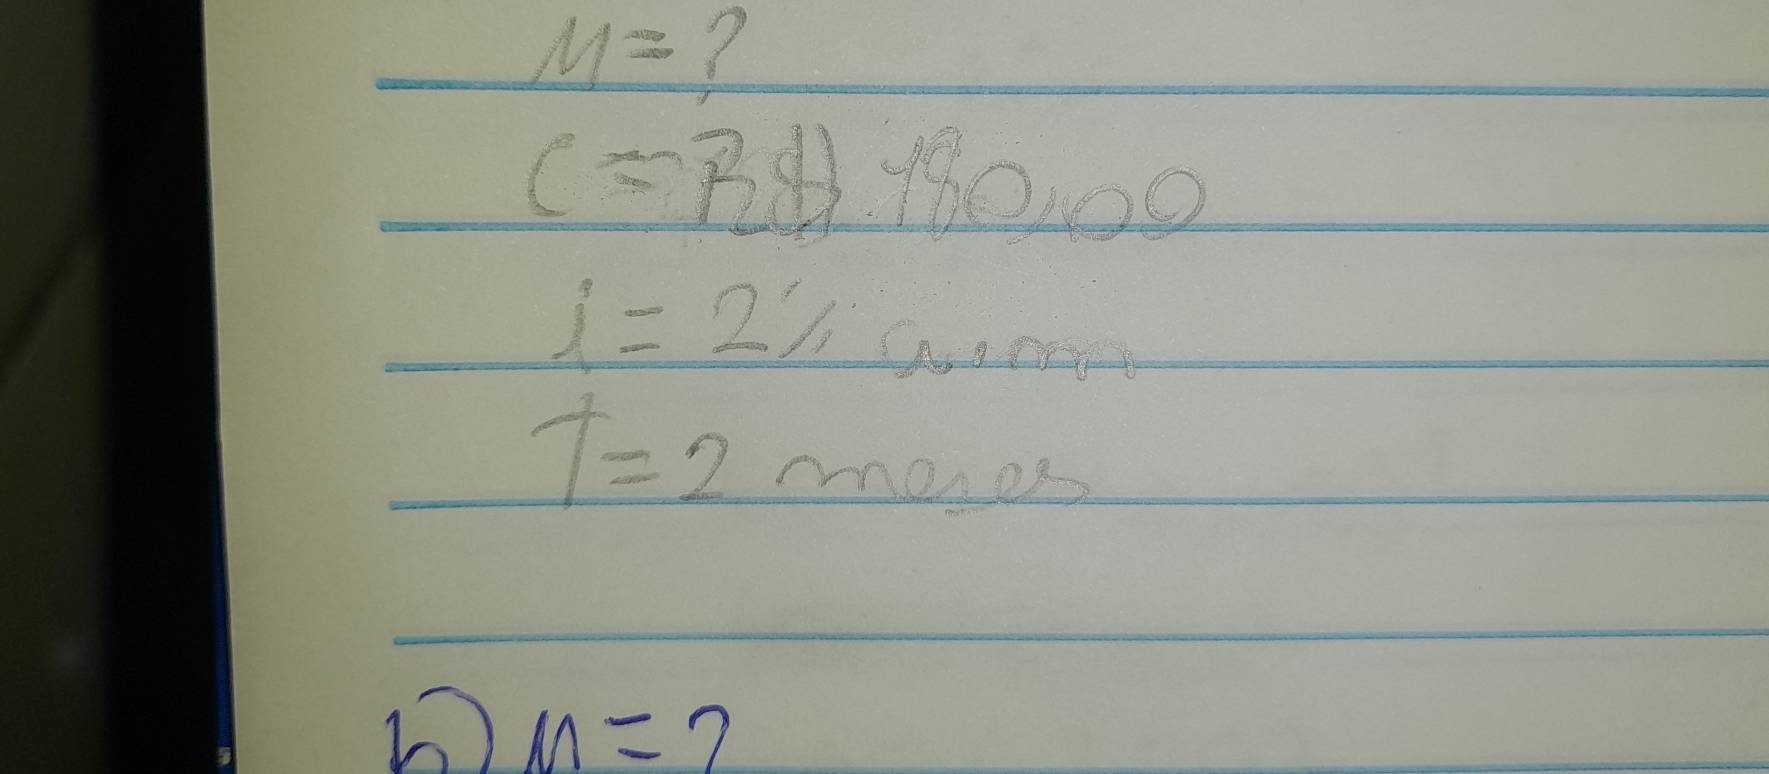 M = ?
C = R$ 180,00
i = 2% a.m
T = 2 meses
b) M = ?